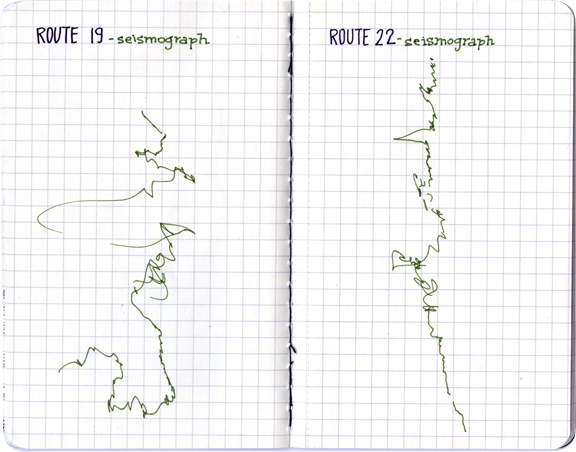 ROUTE 19 - seismograph
ROUTE 22 - seismograph